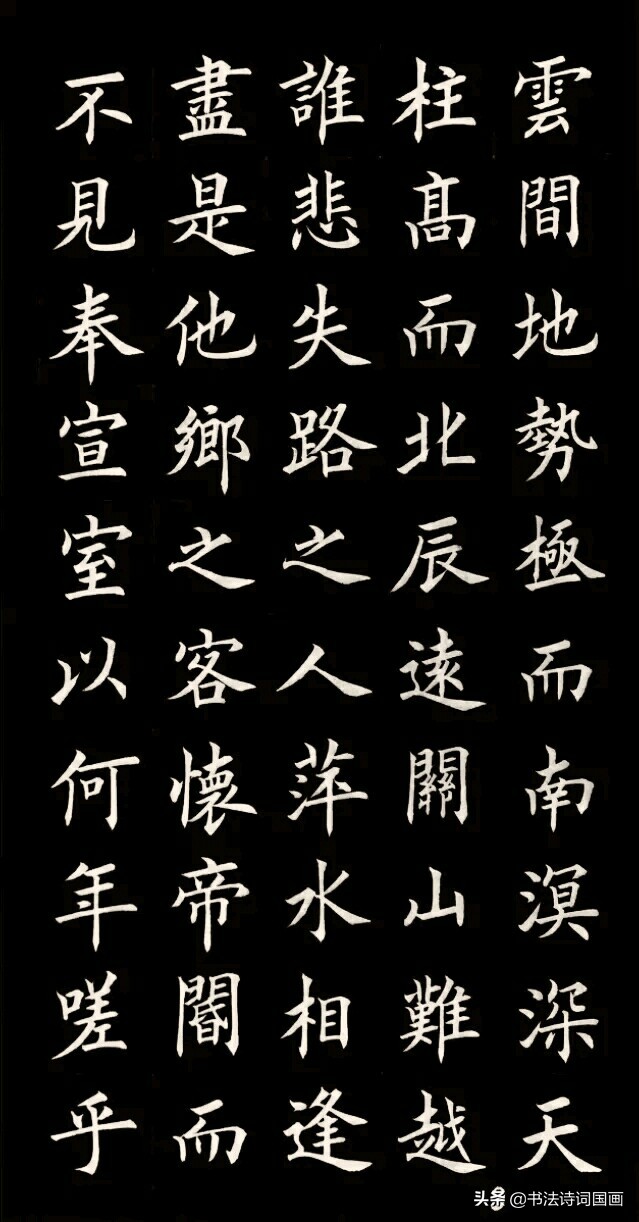 雲間地勢極而南溟深天
柱髙而北辰遠關山難越
誰悲失路之人萍水相逢
盡是他鄉之客懷帝閽而
不見奉宣室以何年嗟乎
头条@书法诗词国画